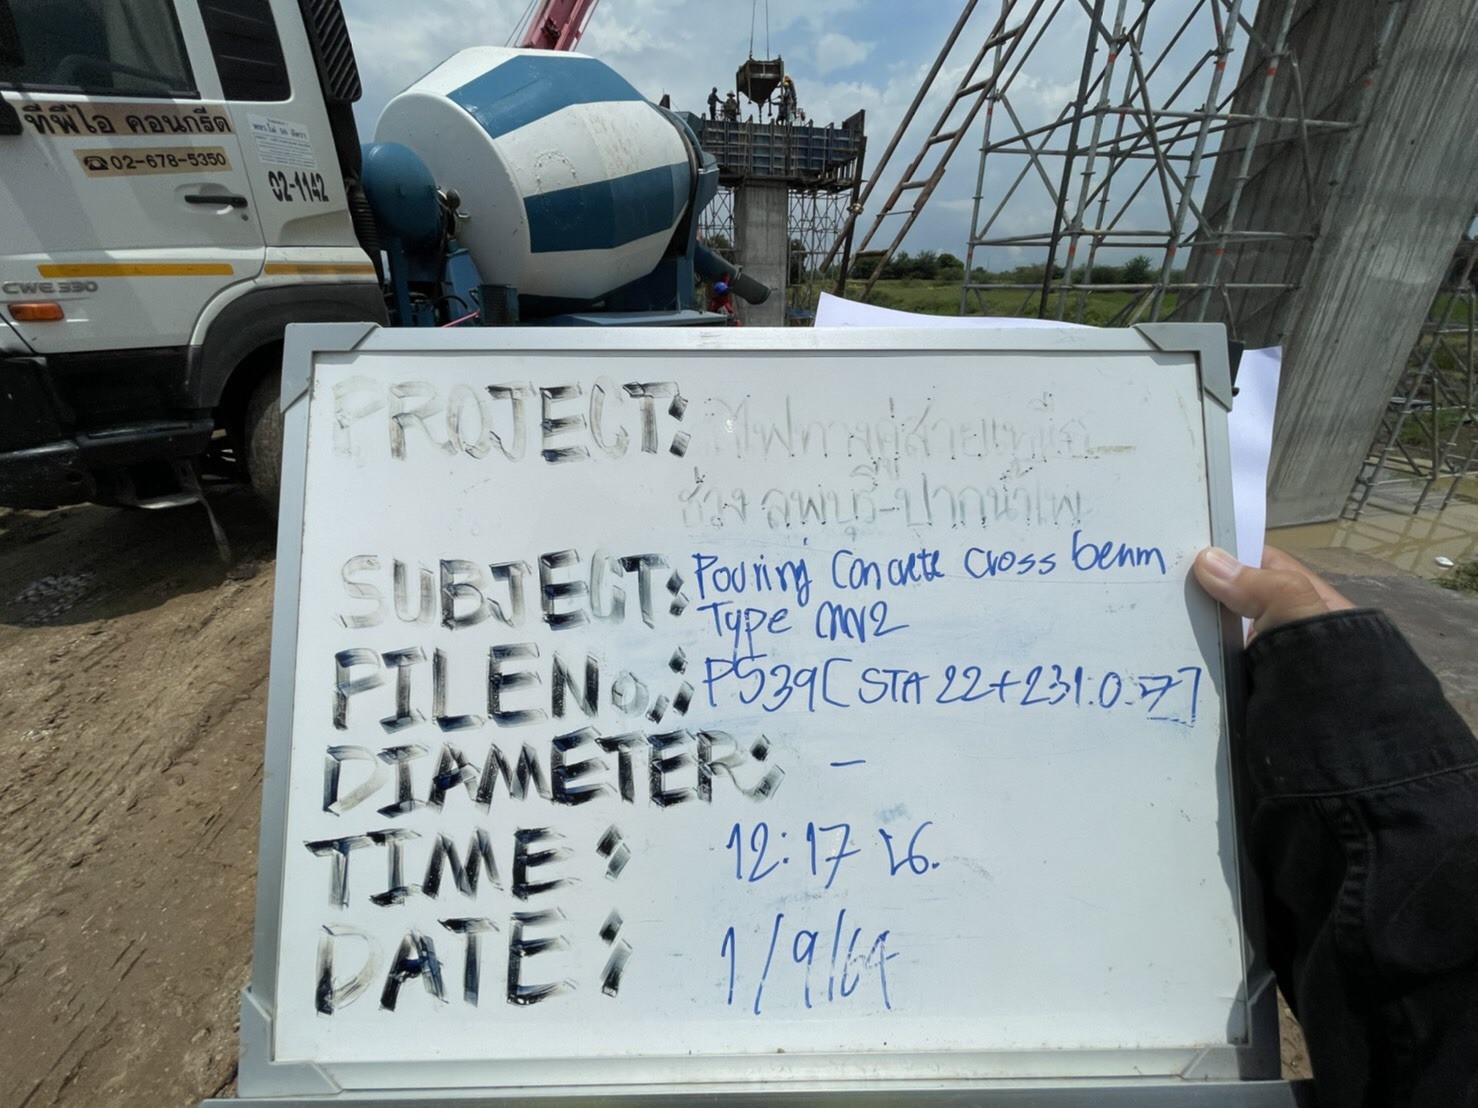 ทีพีไอ คอนกรีต
☎02-678-5350
02-1142
CWE 330
PROJECT: รถไฟทางคู่สายเหนือ
ช่วง ลพบุรี-ปากน้ำโพ
SUBJECT: Pouring Concrete cross beam
Type
PILE No.: P539[STA 22+231.0.77]
DIAMETER: -
TIME: 12:17 น.
DATE: 1/9/64